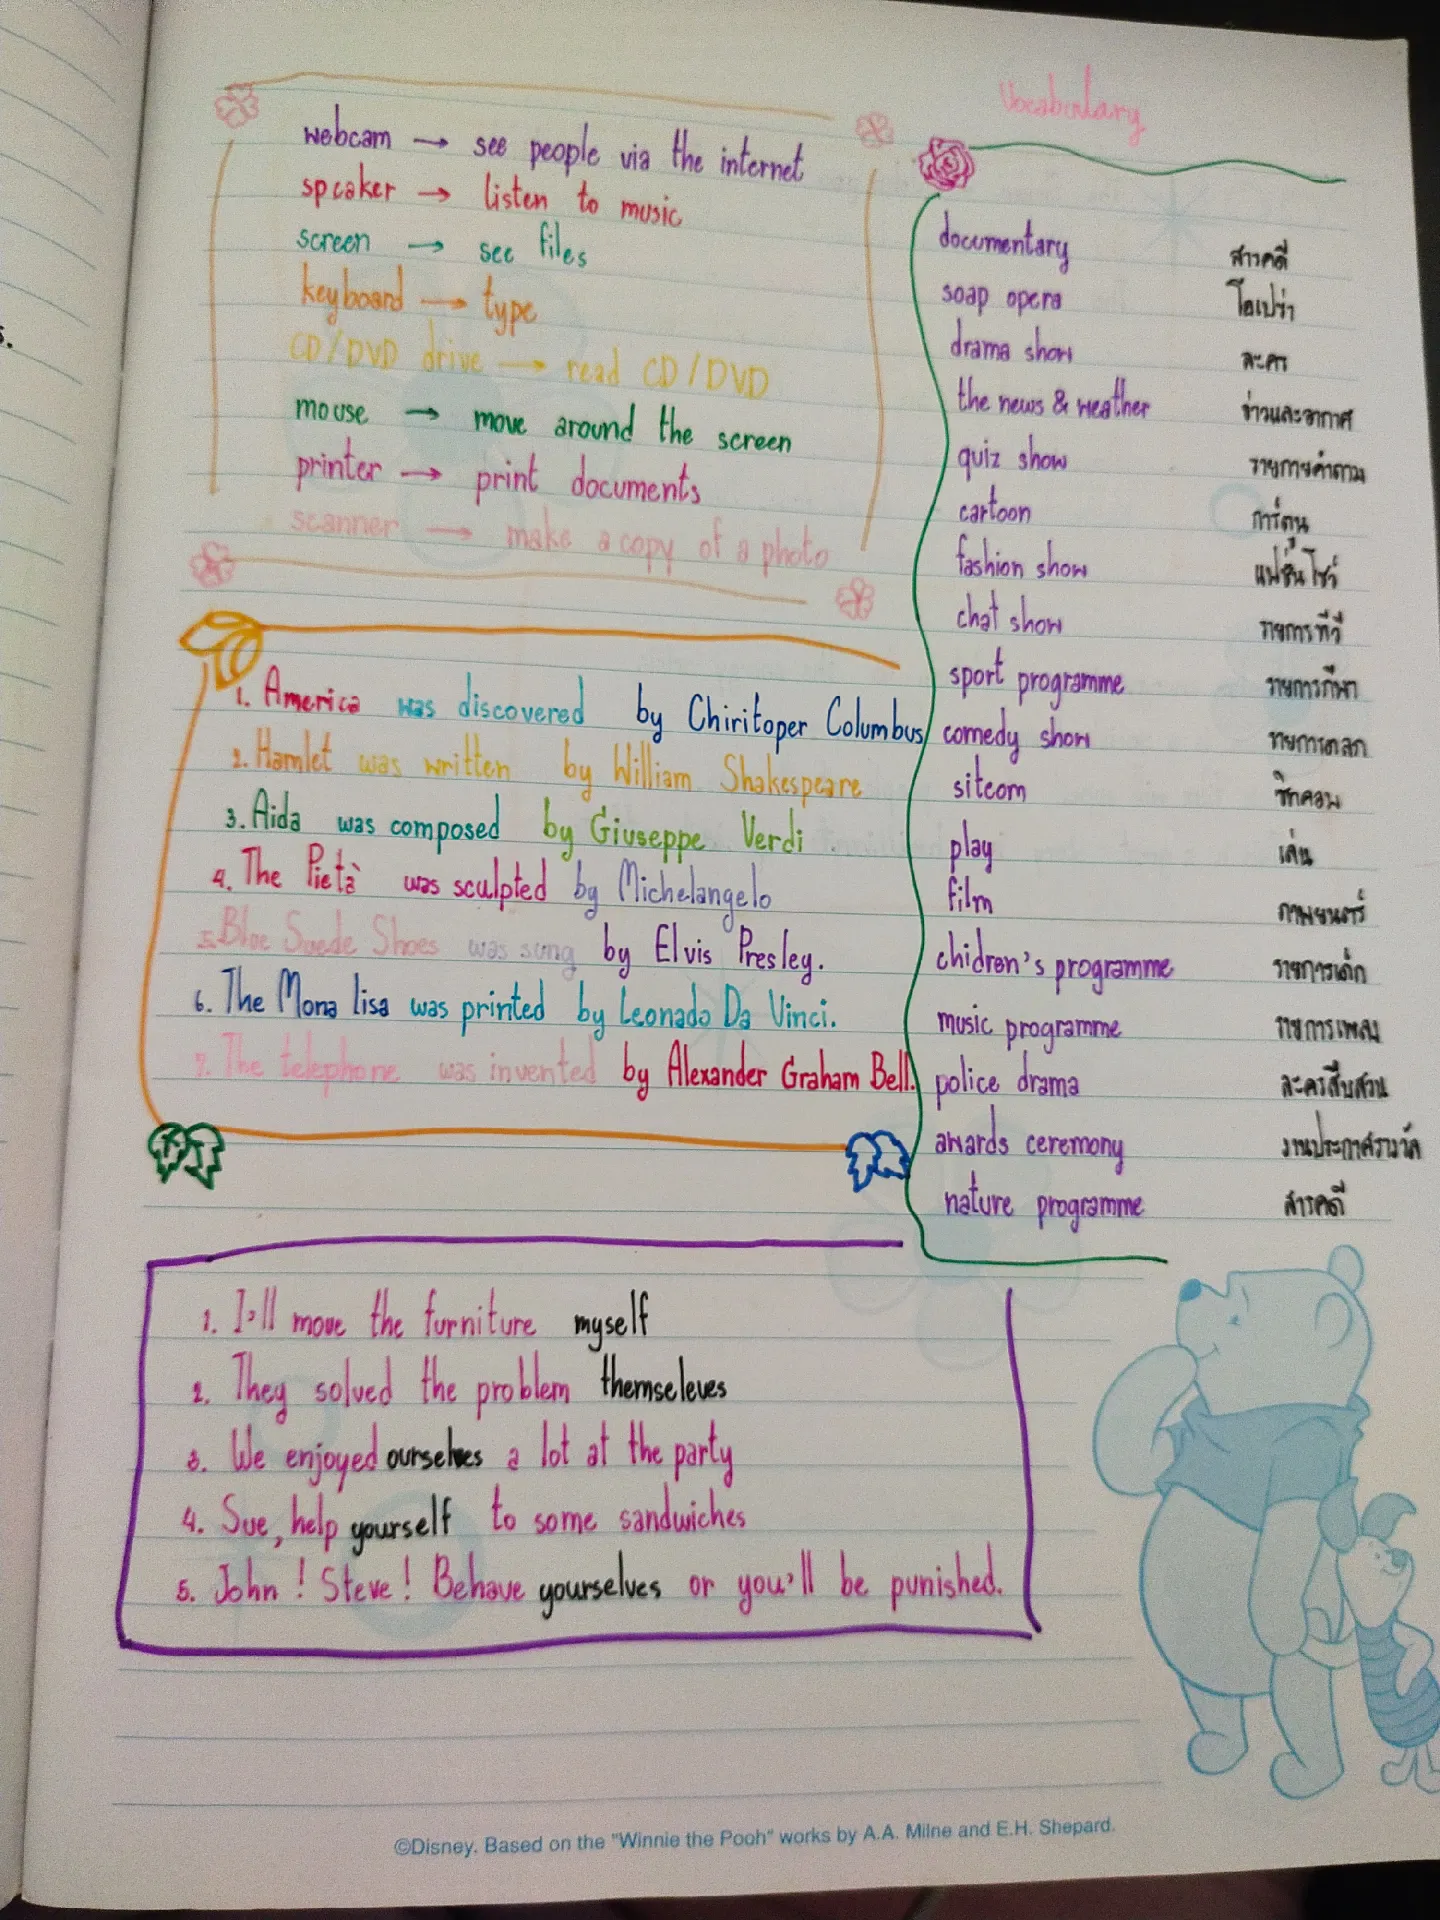 webcam → see people via the internet
speaker → listen to music
screen → see files
keyboard → type
CD/DVD drive → read CD/DVD
mouse → move around the screen
printer → print documents
scanner → make a copy of a photo
1. America was discovered by Chiritoper Columbus
2. Hamlet was written by William Shakespeare
3. Aida was composed by Giuseppe Verdi
4. The Pietà was sculpted by Michelangelo
5. Bloe Suede Shoes was sung by Elvis Presley.
6. The Mona lisa was printed by Leonado Da Vinci.
7. The telephone was invented by Alexander Graham Bell.
Vocabulary
documentary สารคดี
soap opera โอเปร่า
drama show ละคร
the news & weather ข่าวและอากาศ
quiz show รายการคำถาม
cartoon การ์ตูน
fashion show แฟชั่นโชว์
chat show รายการทีวี
sport programme รายการกีฬา
comedy show รายการตลก
sitcom ซิทคอม
play เล่น
film ภาพยนตร์
chidren's programme รายการเด็ก
music programme รายการเพลง
police drama ละครสืบสวน
awards ceremony งานประกาศรางวัล
nature programme สารคดี
1. I'll move the furniture myself
2. They solved the problem themseleves
3. We enjoyed ourselves a lot at the party
4. Sue, help yourself to some sandwiches
5. John ! Steve ! Behave yourselves or you'll be punished.
©Disney. Based on the "Winnie the Pooh" works by A.A. Milne and E.H. Shepard.